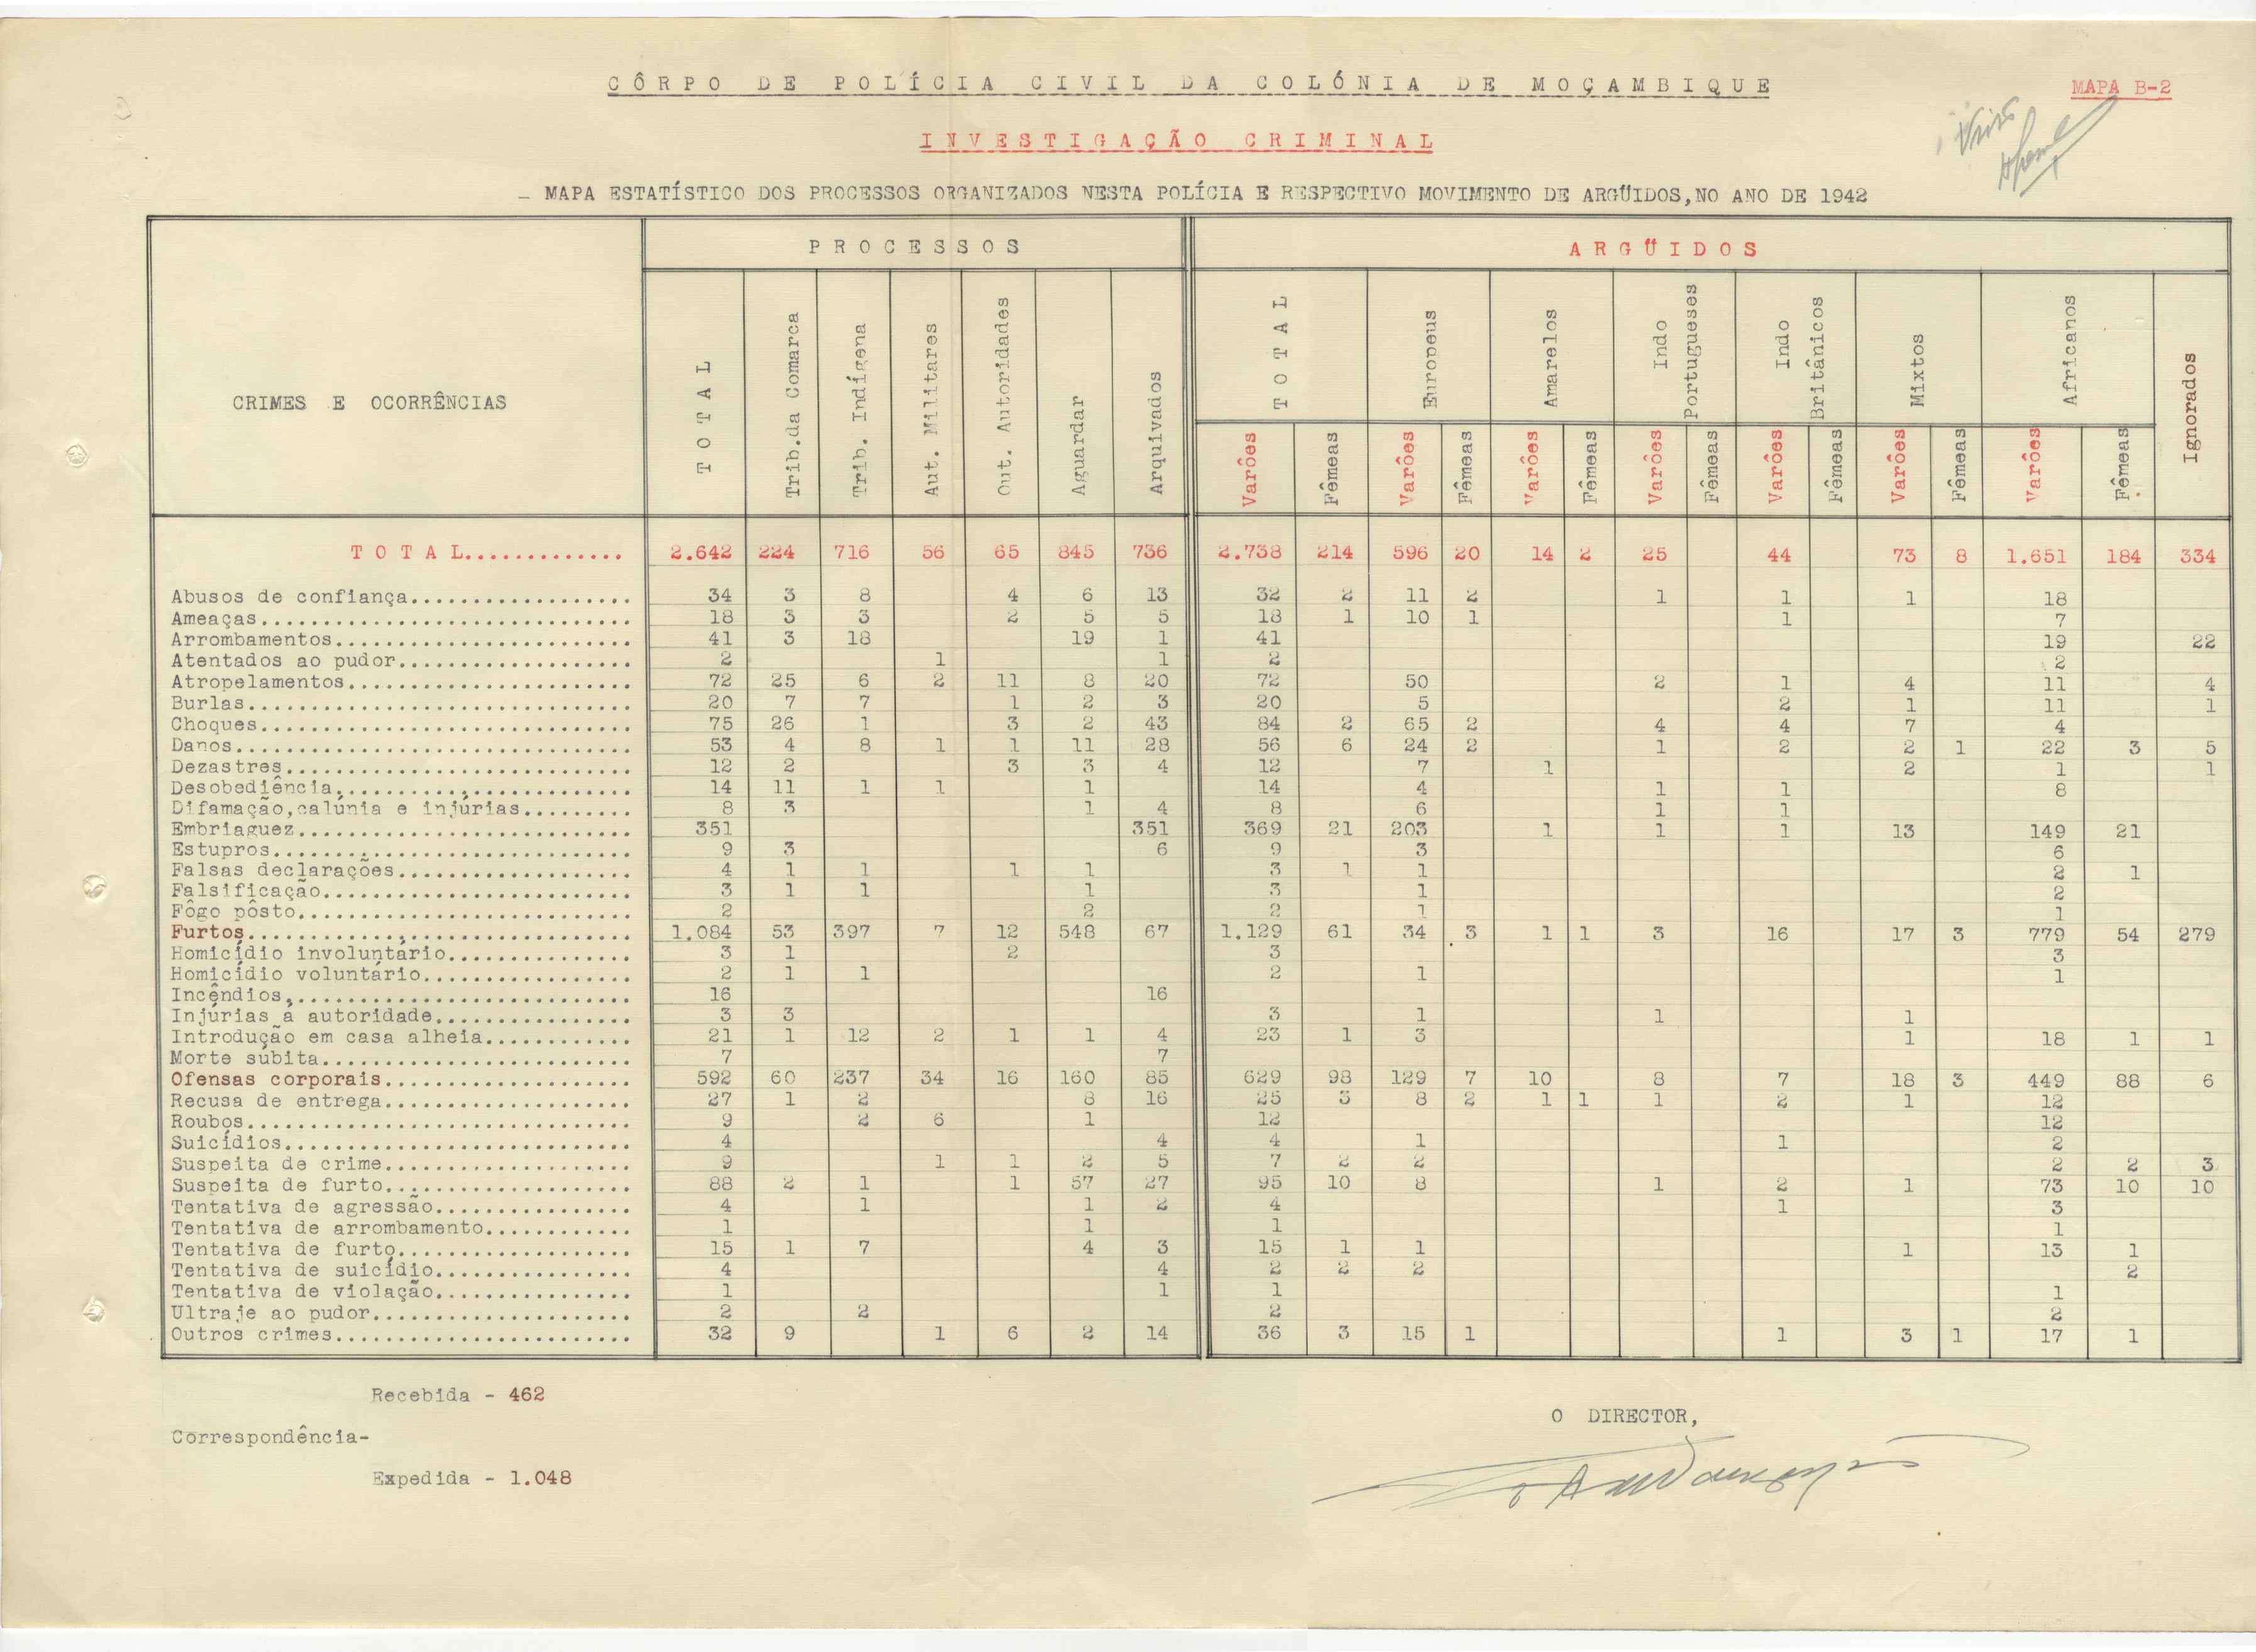 CÔRPO DE POLÍCIA CIVIL DA COLÓNIA DE MOÇAMBIQUE
MAPA B-2
INVESTIGAÇÃO CRIMINAL
- MAPA ESTATÍSTICO DOS PROCESSOS ORGANIZADOS NESTA POLÍCIA E RESPECTIVO MOVIMENTO DE ARGÜIDOS,NO ANO DE 1942
CRIMES E OCORRÊNCIAS
PROCESSOS
ARGÜIDOS
TOTAL Trib.da Comarca Trib. Indígena Aut. Militares Out. Autoridades Aguardar Arquivados
TOTAL Europeus Amarelos Indo Portugueses Indo Britânicos Mixtos Africanos Ignorados
Varões Fêmeas Varões Fêmeas Varões Fêmeas Varões Fêmeas Varões Fêmeas Varões Fêmeas Varões Fêmeas
TOTAL............. 2.642 224 716 56 65 845 736 2.738 214 596 20 14 2 25 44 73 8 1.651 184 334
Abusos de confiança.................. 34 3 8 4 6 13 32 2 11 2 1 1 1 18
Ameaças.............................. 18 3 3 2 5 5 18 1 10 1 1 7
Arrombamentos........................ 41 3 18 19 1 41 19 22
Atentados ao pudor................... 2 1 1 2 2
Atropelamentos....................... 72 25 6 2 11 8 20 72 50 2 1 4 11 4
Burlas............................... 20 7 7 1 2 3 20 5 2 1 11 1
Choques.............................. 75 26 1 3 2 43 84 2 65 2 4 4 7 4
Danos................................ 53 4 8 1 1 11 28 56 6 24 2 1 2 2 1 22 3 5
Dezastres............................ 12 2 3 3 4 12 7 1 2 1 1
Desobediência........................ 14 11 1 1 1 14 4 1 1 8
Difamação,calúnia e injúrias......... 8 3 1 4 8 6 1 1
Embriaguez........................... 351 351 369 21 203 1 1 1 13 149 21
Estupros............................. 9 3 6 9 3 6
Falsas declarações................... 4 1 1 1 1 3 1 1 2 1
Falsificação......................... 3 1 1 1 3 1 2
Fôgo pôsto........................... 2 2 2 1 1
Furtos............................... 1.084 53 397 7 12 548 67 1.129 61 34 3 1 1 3 16 17 3 779 54 279
Homicídio involuntário............... 3 1 2 3 3
Homicídio voluntário................. 2 1 1 2 1 1
Incêndios............................ 16 16
Injúrias à autoridade................ 3 3 3 1 1 1
Introdução em casa alheia............ 21 1 12 2 1 1 4 23 1 3 1 18 1 1
Morte súbita......................... 7 7
Ofensas corporais.................... 592 60 237 34 16 160 85 629 98 129 7 10 8 7 18 3 449 88 6
Recusa de entrega.................... 27 1 2 8 16 25 3 8 2 1 1 1 2 1 12
Roubos............................... 9 2 6 1 12 12
Suicídios............................ 4 4 4 1 1 2
Suspeita de crime.................... 9 1 1 2 5 7 2 2 2 2 3
Suspeita de furto.................... 88 2 1 1 57 27 95 10 8 1 2 1 73 10 10
Tentativa de agressão................ 4 1 1 2 4 1 3
Tentativa de arrombamento............ 1 1 1 1
Tentativa de furto................... 15 1 7 4 3 15 1 1 1 13 1
Tentativa de suicídio................ 4 4 2 2 2 2
Tentativa de violação................ 1 1 1 1
Ultraje ao pudor..................... 2 2 2 2
Outros crimes........................ 32 9 1 6 2 14 36 3 15 1 1 3 1 17 1
Recebida - 462
Correspondência-
Expedida - 1.048
O DIRECTOR,